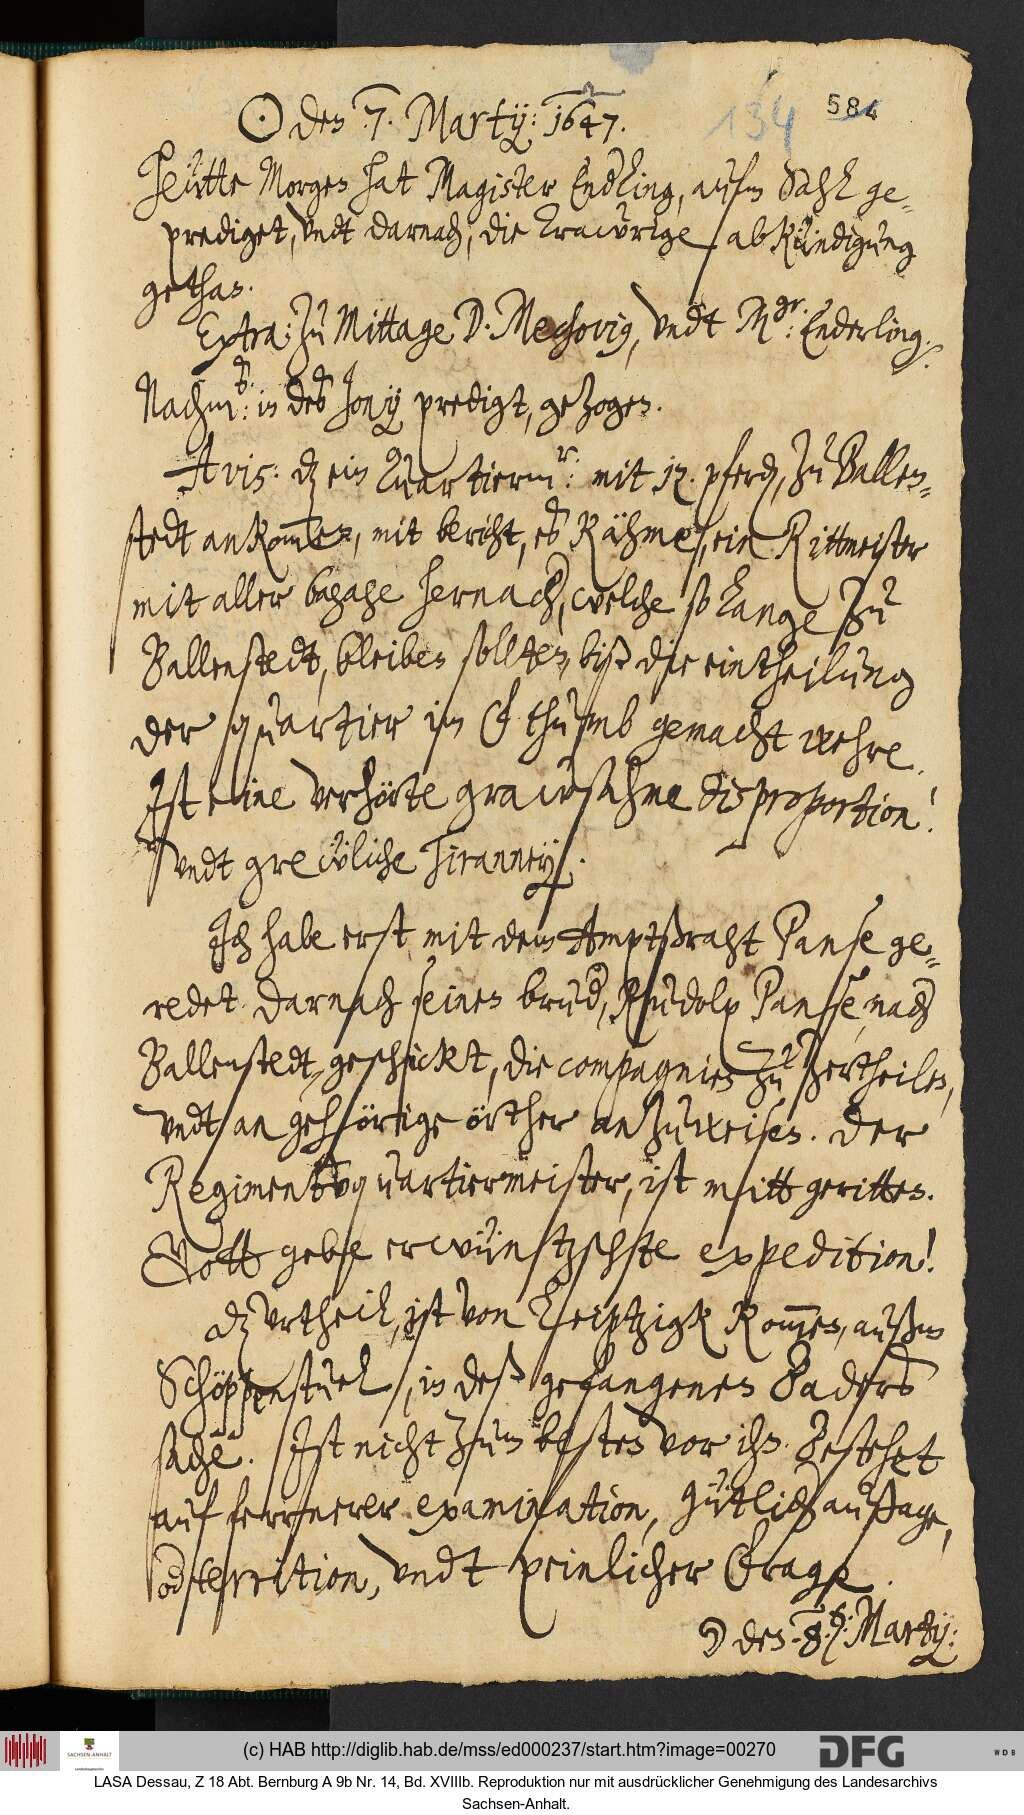 584
134
☉ den 7. Martij: 1647.
Heütte Morgen hat Magister Enderling, aufm Sahl ge-
prediget, vndt darnach, die trawrige abkündigung
gethan.
Extra: zu Mittage D. Mechovig, vndt Mgr: Enderling.
Nachmds: in des Jonij predigt, gezogen.
Avis: dz ein Quartiermr: mit 12. pferden, zu Ballen-
stedt ankommen, mit bericht, es kähme, ein Rittmeister
mit aller bagage hernach, welche so lange zu
Ballenstedt, bleiben sollten, biß die eintheilung
der quartier im Fürstenthumb gemacht wehre.
Ist eine vnerhörte grawsahme disproportion!
vndt grewliche Tiranney.
Ich habe erst mit dem Amptßraht Panse ge-
redet. darnach seinen bruder, Rudolf Panse, nach
Ballenstedt, geschickt, die compagnien zu zertheilen,
vndt an gehörige örther anzuweisen. Der
Regimentsquartiermeister, ist mitt geritten.
Gott gebe erwüntzschte expedition!
dz vrtheil, ist von Leiptzigk kommen, außm
Schöppenstuel, in deß gefangenen Baders
sache. Ist nicht zum besten vor ihn. Bestehet
auf fernerer examination, gütlicher außage,
oder territion, vndt peinlicher Frage.
☽ den 8. Martij:
(c) HAB http://diglib.hab.de/mss/ed000237/start.htm?image=00270
SACHSEN-ANHALT
DFG
WDB
LASA Dessau, Z 18 Abt. Bernburg A 9b Nr. 14, Bd. XVIIIb. Reproduktion nur mit ausdrücklicher Genehmigung des Landesarchivs
Sachsen-Anhalt.